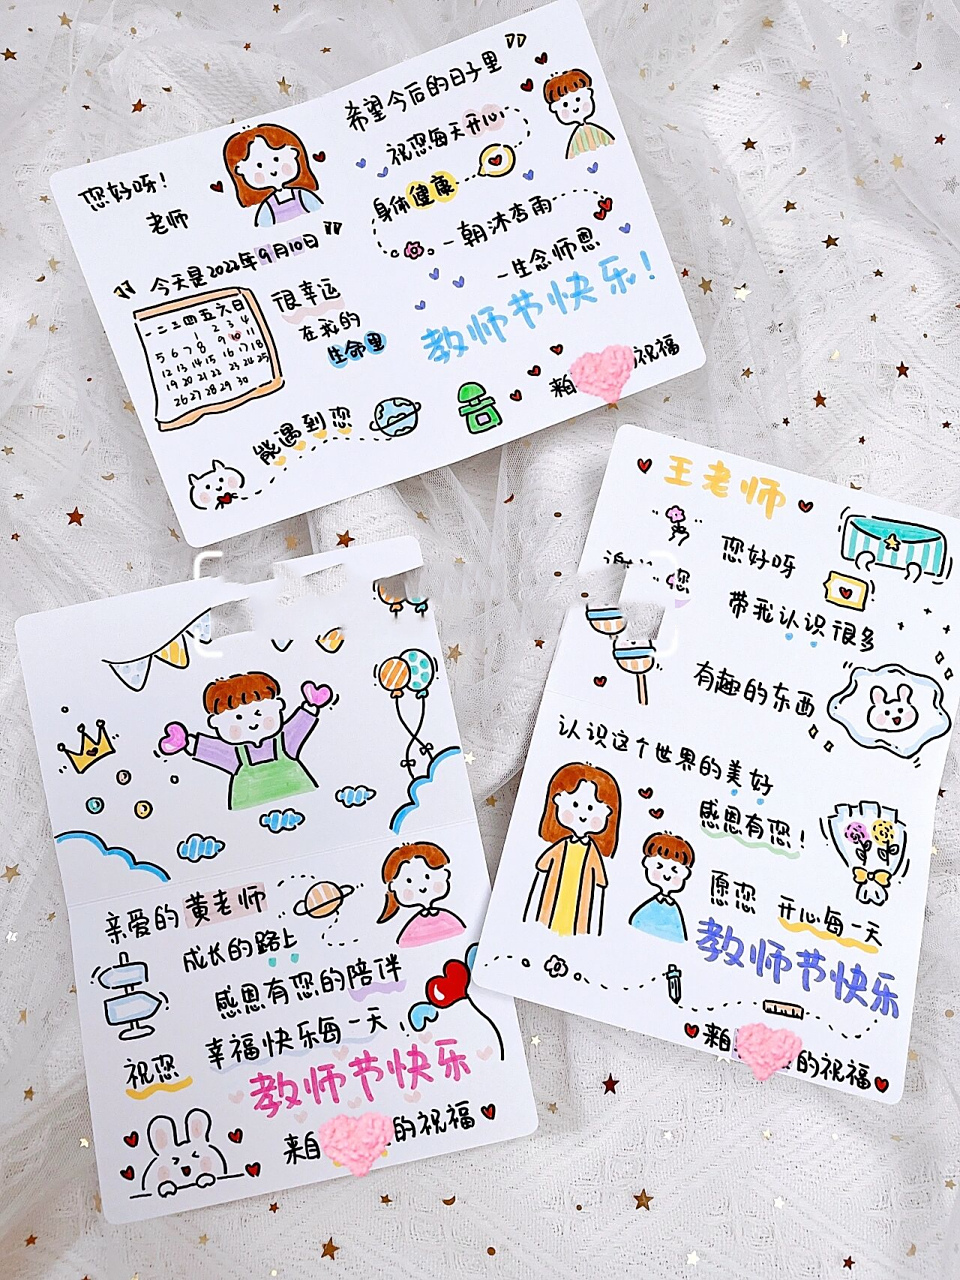 您好呀!
老师
今天是2022年9月10日
一二三四五六日
1 2 3 4
5 6 7 8 9 10 11
12 13 14 15 16 17 18
19 20 21 22 23 24 25
26 27 28 29 30
很幸运
在我的
生命里
能遇到您
希望今后的日子里
祝您每天开心
身体健康
一朝沐杏雨
一生念师恩
教师节快乐!
来自
祝福
亲爱的黄老师
成长的路上
感恩有您的陪伴
祝您
幸福快乐每一天
教师节快乐
来自
的祝福
王老师
您好呀
您
带我认识很多
有趣的东西
认识这个世界的美好
感恩有您!
愿您
开心每一天
教师节快乐
来自
的祝福